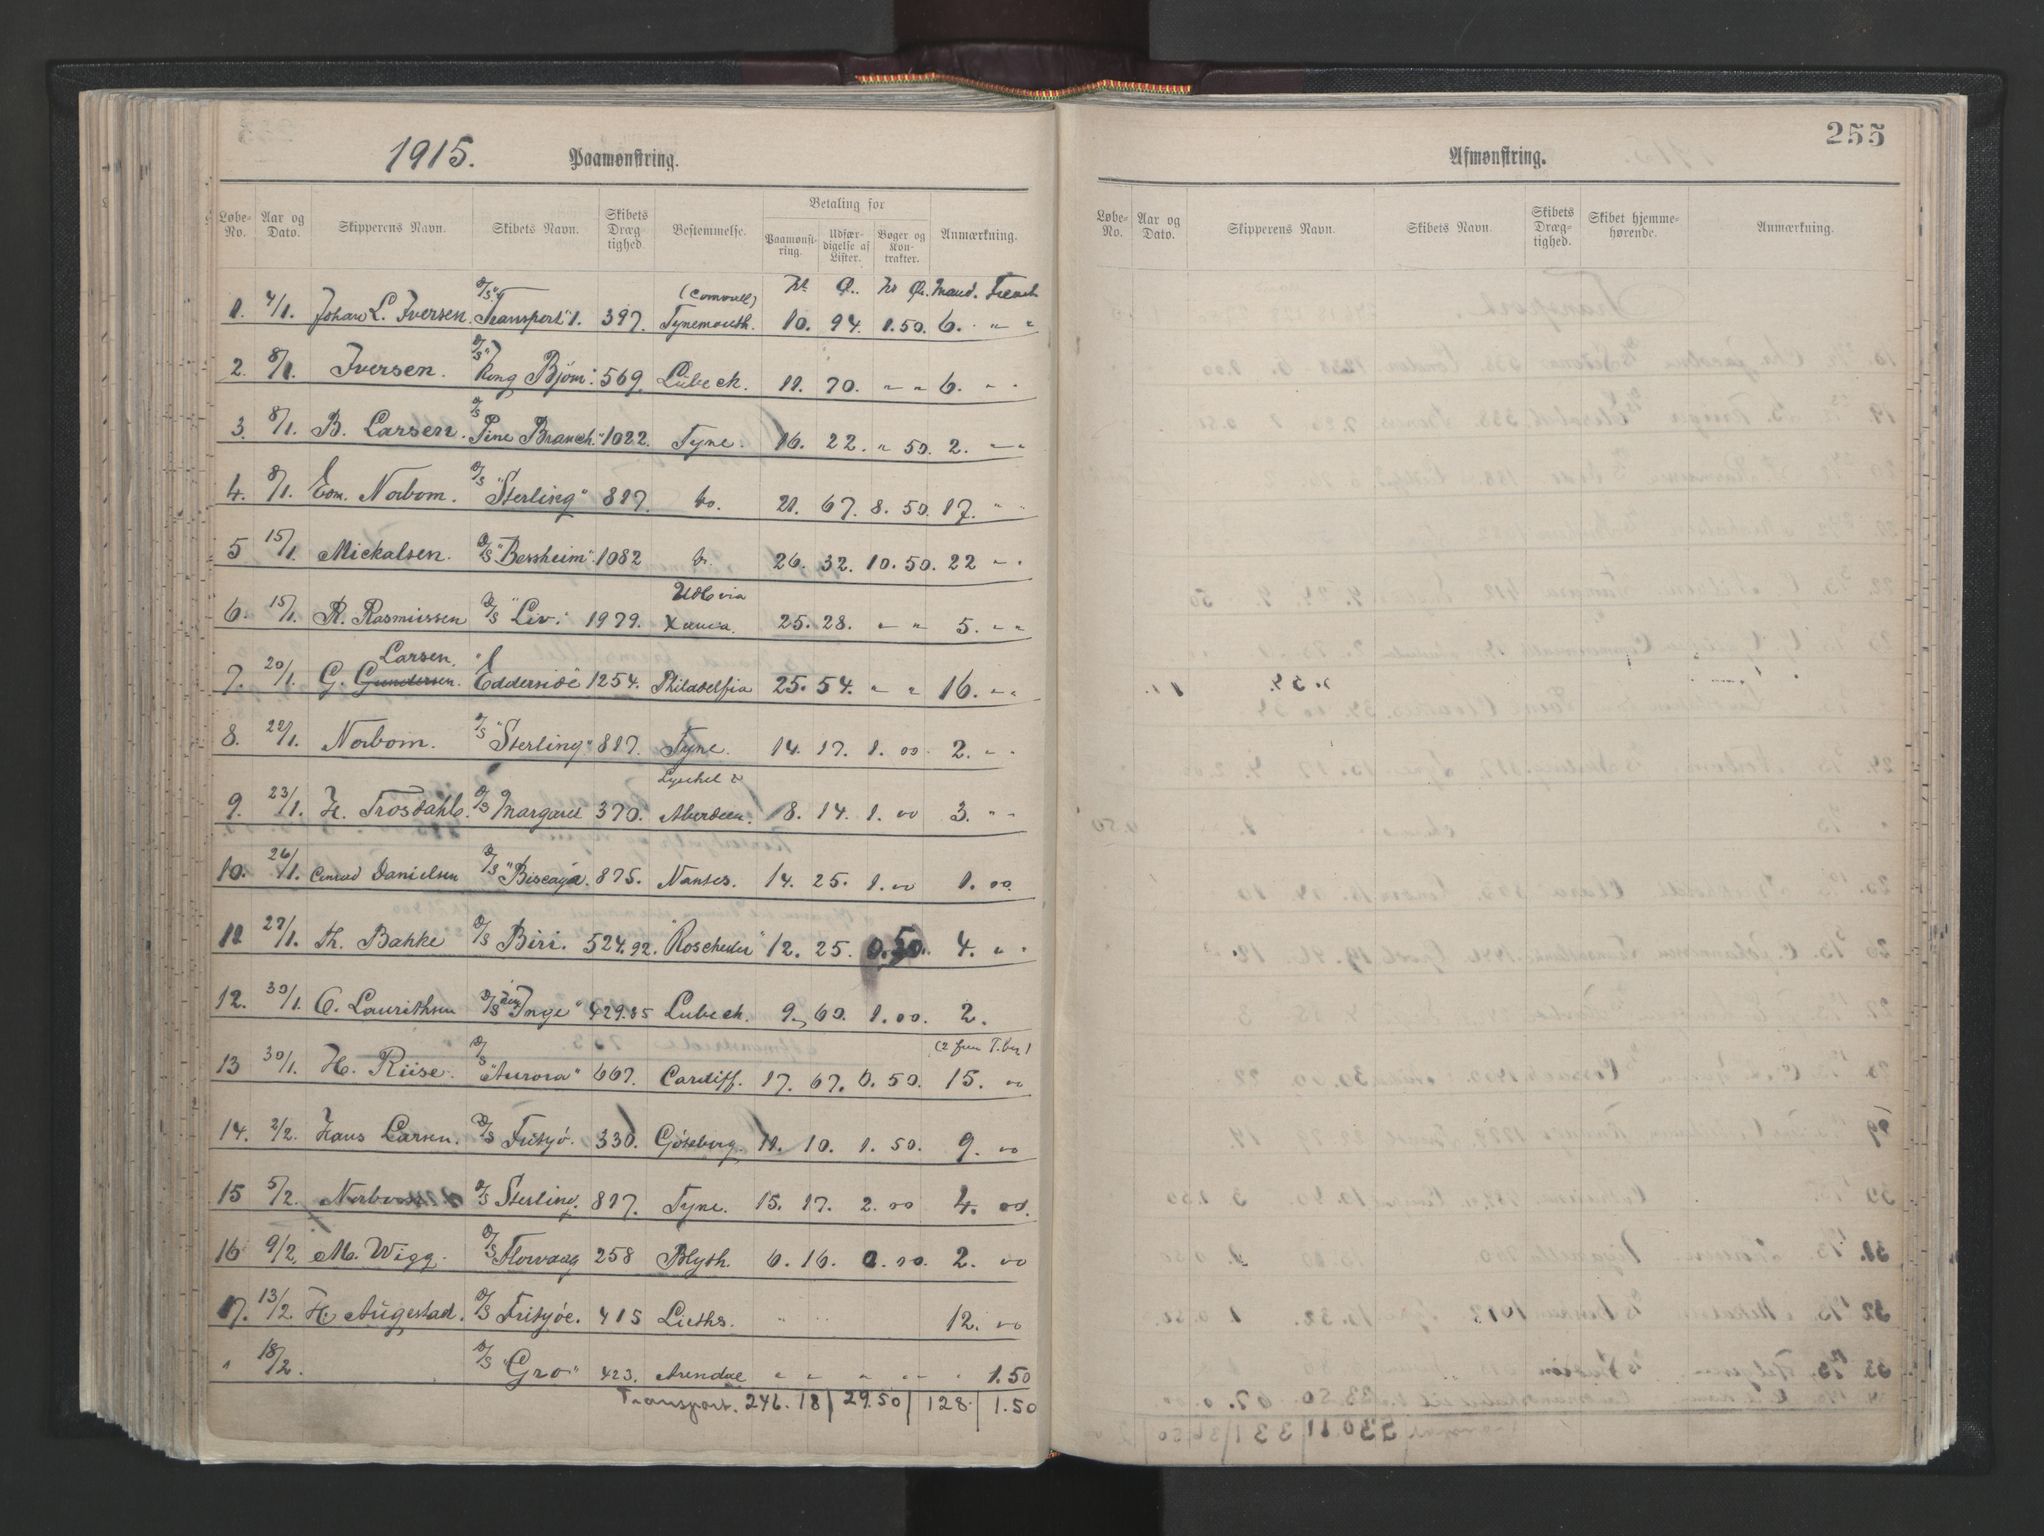 1915. Paamønstring.
Løbe-No. Aar og Dato. Skipperens Navn. Skibets Navn. Skibets Dræg tighed. Bestemmelse. Betaling for Anmærkning.
Paamønst-ring. Udfær-digelse af Lister. Bøger og Kon-trakter.
Kr. Ø. Kr Ø. Mand.
1. 4/1. Johan L. Iversen. D/S "Transport" 1. 397. Tynemouth. 10. 94. 1. 50. 6. " "
2. 8/1. Iversen. D/S "Kong Bjørn". 569. Lübeck. 11. 70. " " 6. " "
3. 8/1. B. Larsen. D/S Pine Branch." 1022. Tyne. 16. 22. " 50. 2. " "
4. 8/1. Edm. Norbom. D/S "Sterling" 817. do. 21. 67. 8. 50. 17. " "
5 15/1. Mickalsen. D/S "Bessheim". 1082 do. 26. 32. 10. 50. 22 " "
6. 15/1. R. Rasmussen D/S "Liv." 1979. 25. 28. " " 5. " "
Larsen.
7. 20/1. G. Gundersen. Edderside 1254. Philadelfia 25. 54. " " 16. " "
8. 22/1. Norbom. D/S "Sterling". 817. Tyne. 14. 17. 1. 00. 2. " "
9. 23/1. H. Trosdahl. D/S Margaret 370. Aberdeen. 8. 14. 1. 00 3. " "
10. 26/1. Conrad Danielsen D/S "Biscaya". 875. Nantes. 14. 25. 1. 00 1. 00.
11 27/1. Th. Bakke D/S Biri. 524.92. 12. 25. 0.50. 4. " "
12. 30/1. C. Laurithsen D/S "Inge" 429.85 Lubeck. 9. 60. 1. 00. 2.
13 30/1. H. Riise. D/S "Aurora" 667. Cardiff. 17. 67. 0. 50. 15. 00
14. 2/2. Hans Larsen. D/S Fritzjø. 330. Göteborg 11. 10. 1. 50. 9. 00
15 5/2. Norbom D/S Sterling. 817. Tyne. 15. 17. 2. 00 4. 00.
16 9/2. M. Wigg. D/S Florvaag 258 Blyth. 6. 16. 0. 00. 2. 00
17. 13/2. H. Augestad. D/S Fritzjøe. 415 Lieths. " " 12. 00
" 18/2. D/S "Gro" 423. Arendal " " " " " 1.50
Transport. 246. 18 29.50 128. 1.50
255
Afmønstring.
Løbe-No. Aar og Dato. Skipperens Navn. Skibets Navn. Skibets Dræg-tighed. Skibet hjemme-hørende. Anmærkning.